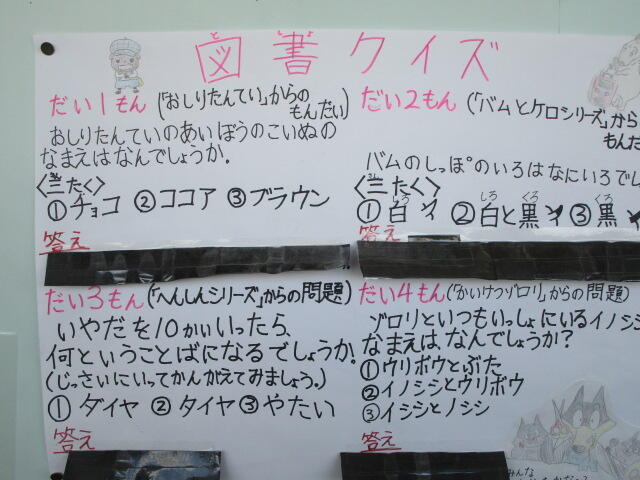 図書クイズ
だい1もん(「おしりたんてい」からの
もんだい)
おしりたんていのあいぼうのこいぬの
なまえはなんでしょうか.
〈三たく〉
①チョコ ②ココア ③ブラウン
答え
だい2もん(「バムとケロシリーズ」から
もんだ
バムのしっぽのいろはなにいろでし
〈三たく〉
しろ しろ くろ くろ
①白 ②白と黒 ③黒
答え
だい3もん(「へんしんシリーズ」からの問題)
いやだを10かいいったら、
何ということばになるでしょうか.
(じっさいにいってかんがえてみましょう.)
①ダイヤ ②タイヤ ③やたい
答え
だい4もん(「かいけつゾロリ」からの問題)
ゾロリといつもいっしょにいるイノシ
なまえは、なんでしょうか?
①ウリボウとぶた
②イノシシとウリボウ
③イシシとノシシ
答え
みんな